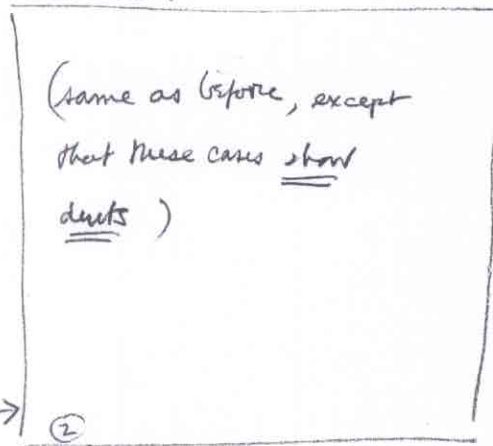 (same as before, except
that these cases show
dents )
②